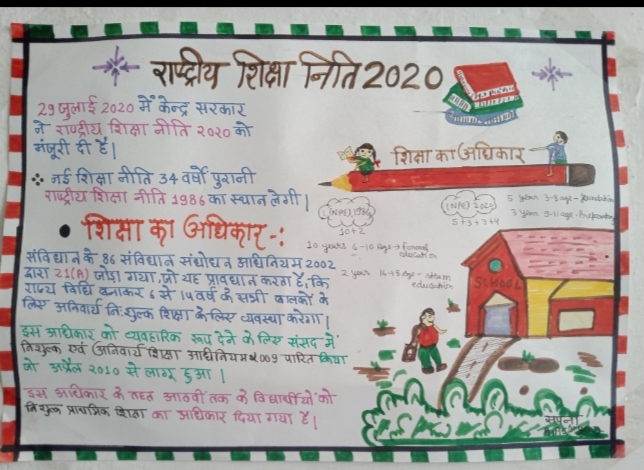 राष्ट्रीय शिक्षा निति 2020
29 जुलाई 2020 में केन्द्र सरकार
ने राष्ट्रीय शिक्षा नीति 2020 को
मंजूरी दी है|
नई शिक्षा नीति 34 वर्षो पुरानी
राष्ट्रीय शिक्षा नीति 1986 का स्थान लेगी|
• शिक्षा का अधिकार-:
संविधान के 86 संविधान संशोधन अधिनियम 2002
द्वारा 21(A) जोड़ा गया, जो यह प्रावधान करता है, कि
राज्य विधि बनाकर 6 से 14 वर्ष के सभी बालकों के
लिए अनिवार्य नि:शुल्क शिक्षा के लिए व्यवस्था करेगा|
इस अधिकार को व्यवहारिक रूप देने के लिए संसद में
निशुल्क एवं अनिवार्य शिक्षा अधिनियम 2009 पारित किया
जो अप्रैल 2010 से लागू हुआ|
इस अधिकार के तहत आठवीं तक के विद्यार्थीयों को
निशुल्क प्राथमिक शिक्षा का अधिकार दिया गया है|
शिक्षा का अधिकार
(NPE) 1986
10+2
10 years 6-10 age → formal
education
2 year 16-18 age → stream
education
(NPE) 2020
5+3+3+4
5 year 3-8 age - foundation
3 year 9-11 age - Preparatory
SCHOOL
सपना